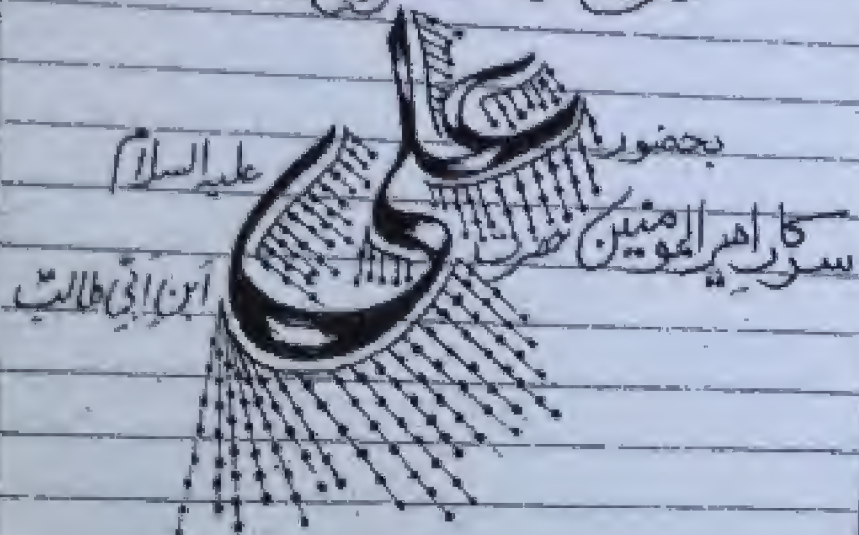 بحضور
سرکارِ امیرالمومنین حضرت
علی
علیہ السلام
ابنِ ابی طالبؑ